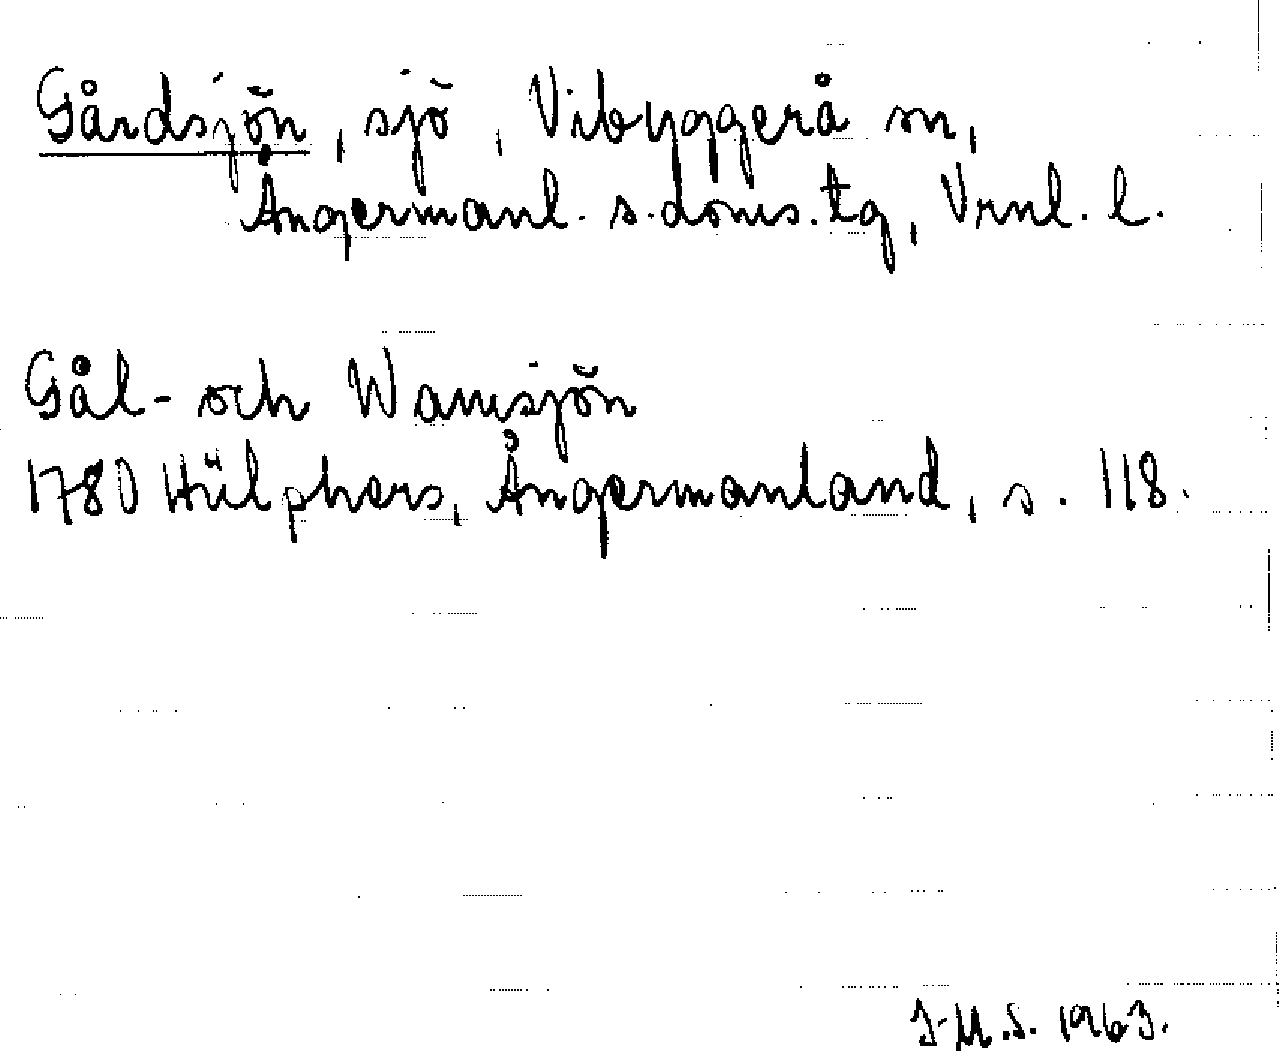 Gårdsjön, sjö, Vibyggerå sn,
Ångermanl. s. doms. tg, Vrnl. l.
Gål- och Wamsjön
1780 Hülphers, Ångermanland, s. 118.
J-M.S. 1963.